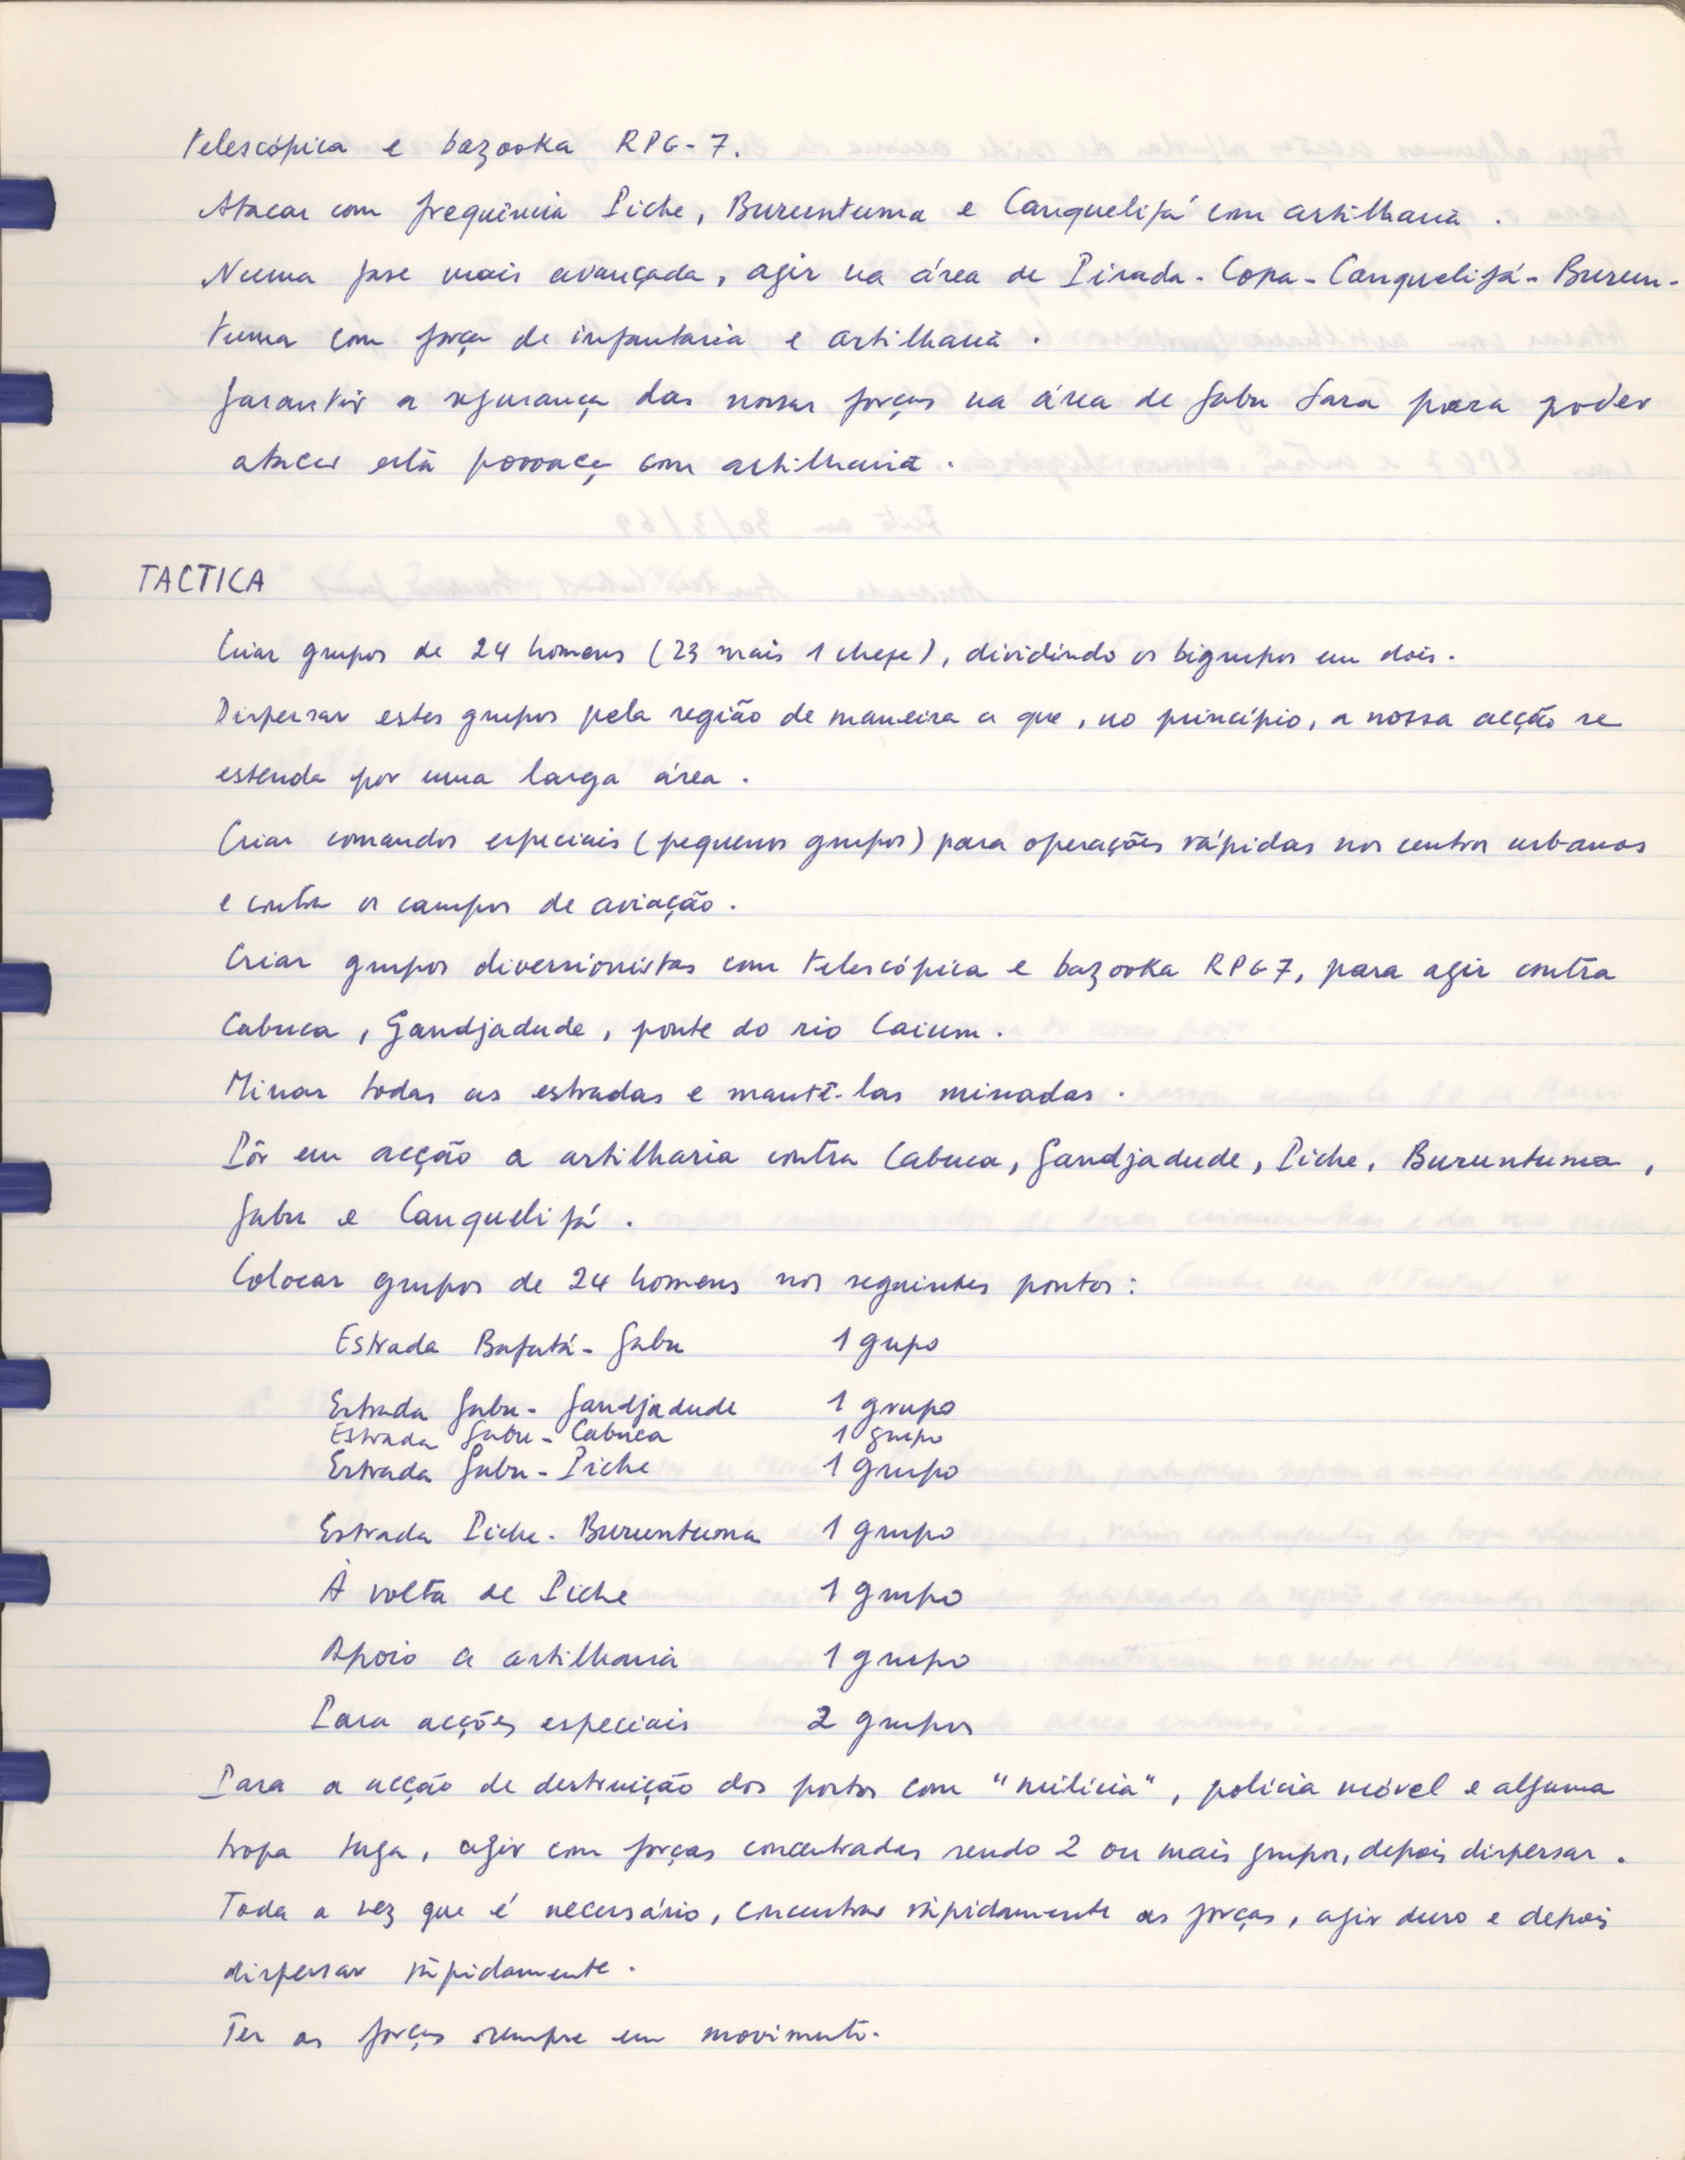 telescópica e bazooka RPG-7.
Atacar com frequência Piche, Buruntuma e Canquelifá com artilharia.
Numa fase mais avançada, agir na área de Pirada-Copa-Canquelifá-Burun-
tuma com força de infantaria e artilharia.
Garantir a segurança das nossas forças na área de Gabu Sara para poder
atacar esta povoaç com artilharia.
TACTICA
Criar grupos de 24 homens (23 mais 1 chefe), dividindo os bigrupos em dois.
Dispersar estes grupos pela região de maneira a que, no princípio, a nossa acção se
estenda por uma larga área.
Criar comandos especiais (pequenos grupos) para operações rápidas nos centros urbanos
e contra os campos de aviação.
Criar grupos diversionistas com telescópica e bazooka RPG7, para agir contra
Cabuca, Gandjadude, ponte do rio Caium.
Minar todas as estradas e mantê-las minadas.
Pôr em acção a artilharia contra Cabuca, Gandjadude, Piche, Buruntuma,
Gabu e Canquelifá.
Colocar grupos de 24 homens nos seguintes pontos:
Estrada Bafatá-Gabu 1 gupo
Estrada Gabu-Gandjadude 1 grupo
Estrada Gabu-Cabuca 1 grupo
Estrada Gabu-Piche 1 grupo
Estrada Piche-Buruntuma 1 grupo
À volta de Piche 1 grupo
Apoio a artilharia 1 grupo
Para acções especiais 2 grupos
Para a acção de destruição dos postos com "milícia", polícia móvel e alguma
tropa tuga, agir com forças concentradas sendo 2 ou mais grupos, depois dispersar.
Toda a vez que é necessário, concentrar ràpidamente as forças, agir duro e depois
dispersar ràpidamente.
Ter as forças sempre em movimento.